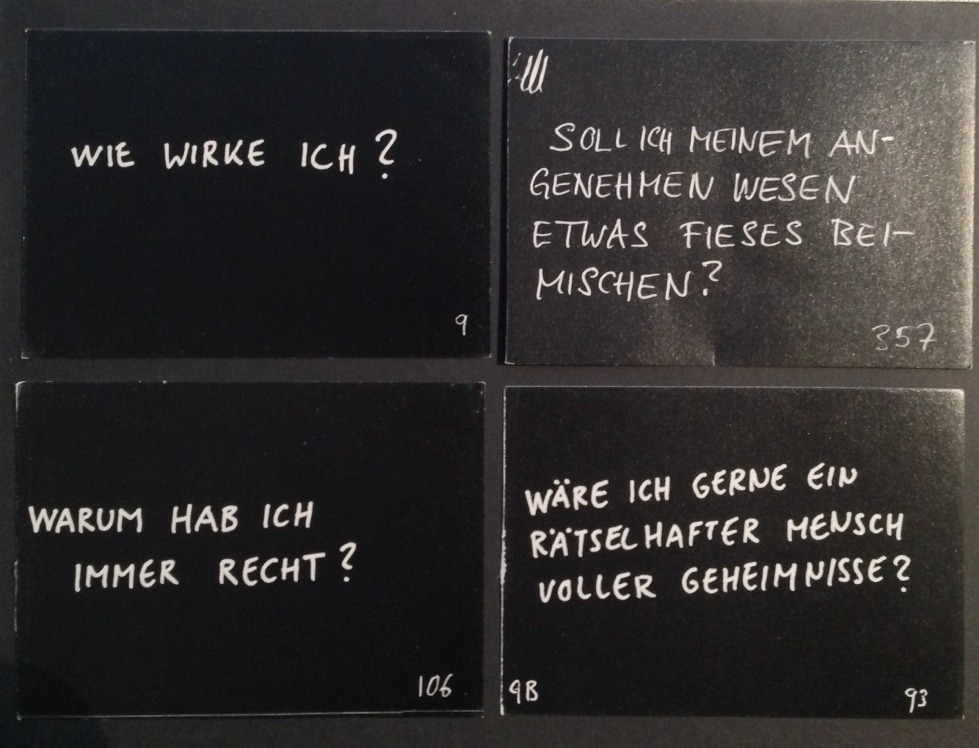 WIE WIRKE ICH?
9
SOLL ICH MEINEM AN-
GENEHMEN WESEN
ETWAS FIESES BEI-
MISCHEN?
357
WARUM HAB ICH
IMMER RECHT?
106
WÄRE ICH GERNE EIN
RÄTSELHAFTER MENSCH
VOLLER GEHEIMNISSE?
9B
93